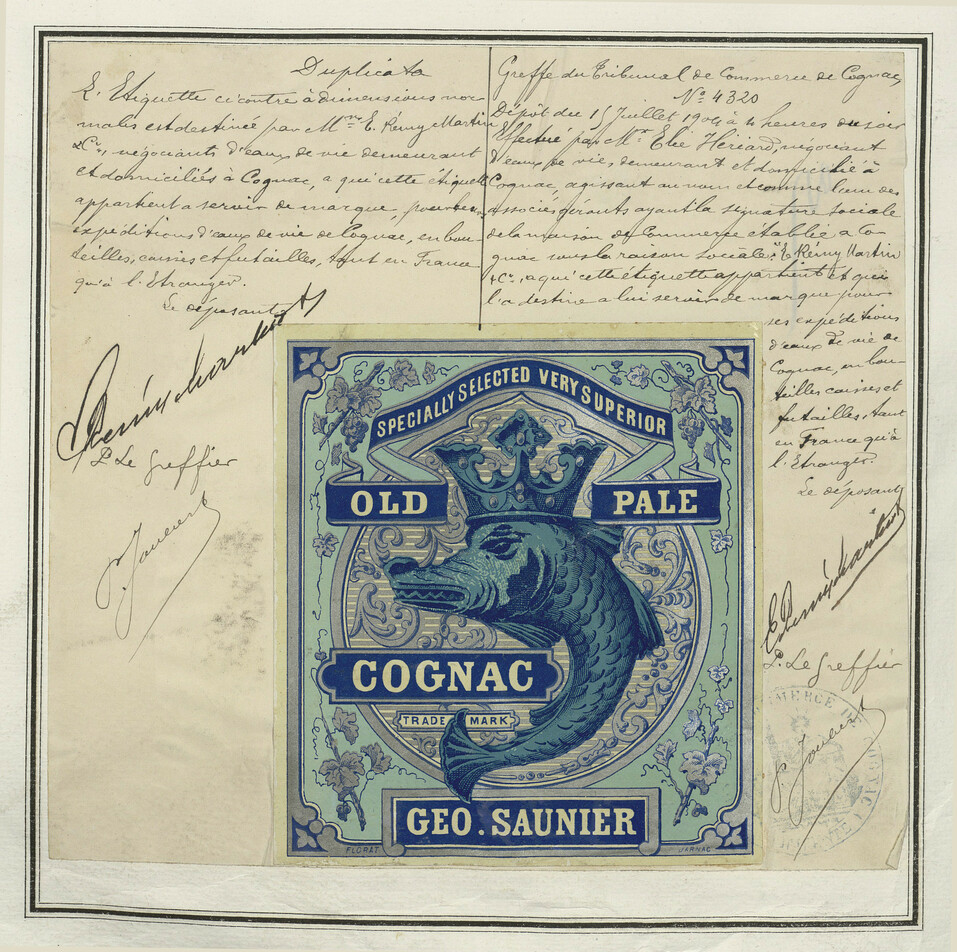 Duplicata
L'Etiquette ci contre à dimensions nor-
males est destinée par Mrs E. Remy Martin
& Cie, négociants d'eaux de vie demeurant
et domiciliés à Cognac, a qui cette étiquette
appartient a servir de marque, pour les
expéditions d'eaux de vie de Cognac, en bou-
teilles, caisses et futailles, tant en France
qu'à l'Etranger.
Le déposant
P. Le Greffier
Greffe du Tribunal de Commerce de Cognac
No 4320
Dépôt du 15 Juillet 1904 à 4 heures du soir
Effectué par Mr Elie Hériard, négociant
d'eaux de vie, demeurant et domicilié à
Cognac, agissant au nom et comme l'un des
associés gérants ayant la signature sociale
de la maison de Commerce établie a Co-
gnac sous la raison sociale: "E. Rémy Martin
& Cie, a qui cette étiquette appartient et qui
l'a destine a lui servir de marque pour
ses expéditions
d'eaux de vie de
Cognac, en bou-
teilles caisses et
futailles, tant
en France qu'à
l'Etranger.
Le déposant
E. Remy Martin
P. Le Greffier
SPECIALLY SELECTED VERY SUPERIOR
OLD PALE
COGNAC
TRADE MARK
GEO. SAUNIER
FLORAT JARNAC